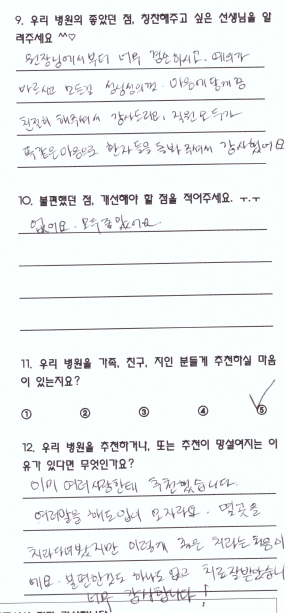 9. 우리 병원의 좋았던 점, 칭찬해주고 싶은 선생님을 알
려주세요 ^^♡
원장님에서부터 너무 겸손하시고, 예의가
바르시고 모든걸 성심성의껏. 마음에 닿게끔
친절히 해주셔서 감사드려요, 직원 모두가
똑같은 마음으로 환자들을 돌봐 주셔서 감사했어요
10. 불편했던 점, 개선해야 할 점을 적어주세요. ㅜ.ㅜ
없어요. 모두 좋았어요
11. 우리 병원을 가족, 친구, 지인 분들게 추천하실 마음
이 있는지요?
① ② ③ ④ ⑤
12. 우리 병원을 추천하거나, 또는 추천이 망설여지는 이
유가 있다면 무엇인가요?
이미 여러사람한테 추천했습니다.
여러말을 해도 입이 모자라요. 몇곳을
치과다녀봤지만 이렇게 좋은 치과는 처음이
에요. 불편한점도 하나도 없고 치료 잘받았습니
너무 감사합니다!